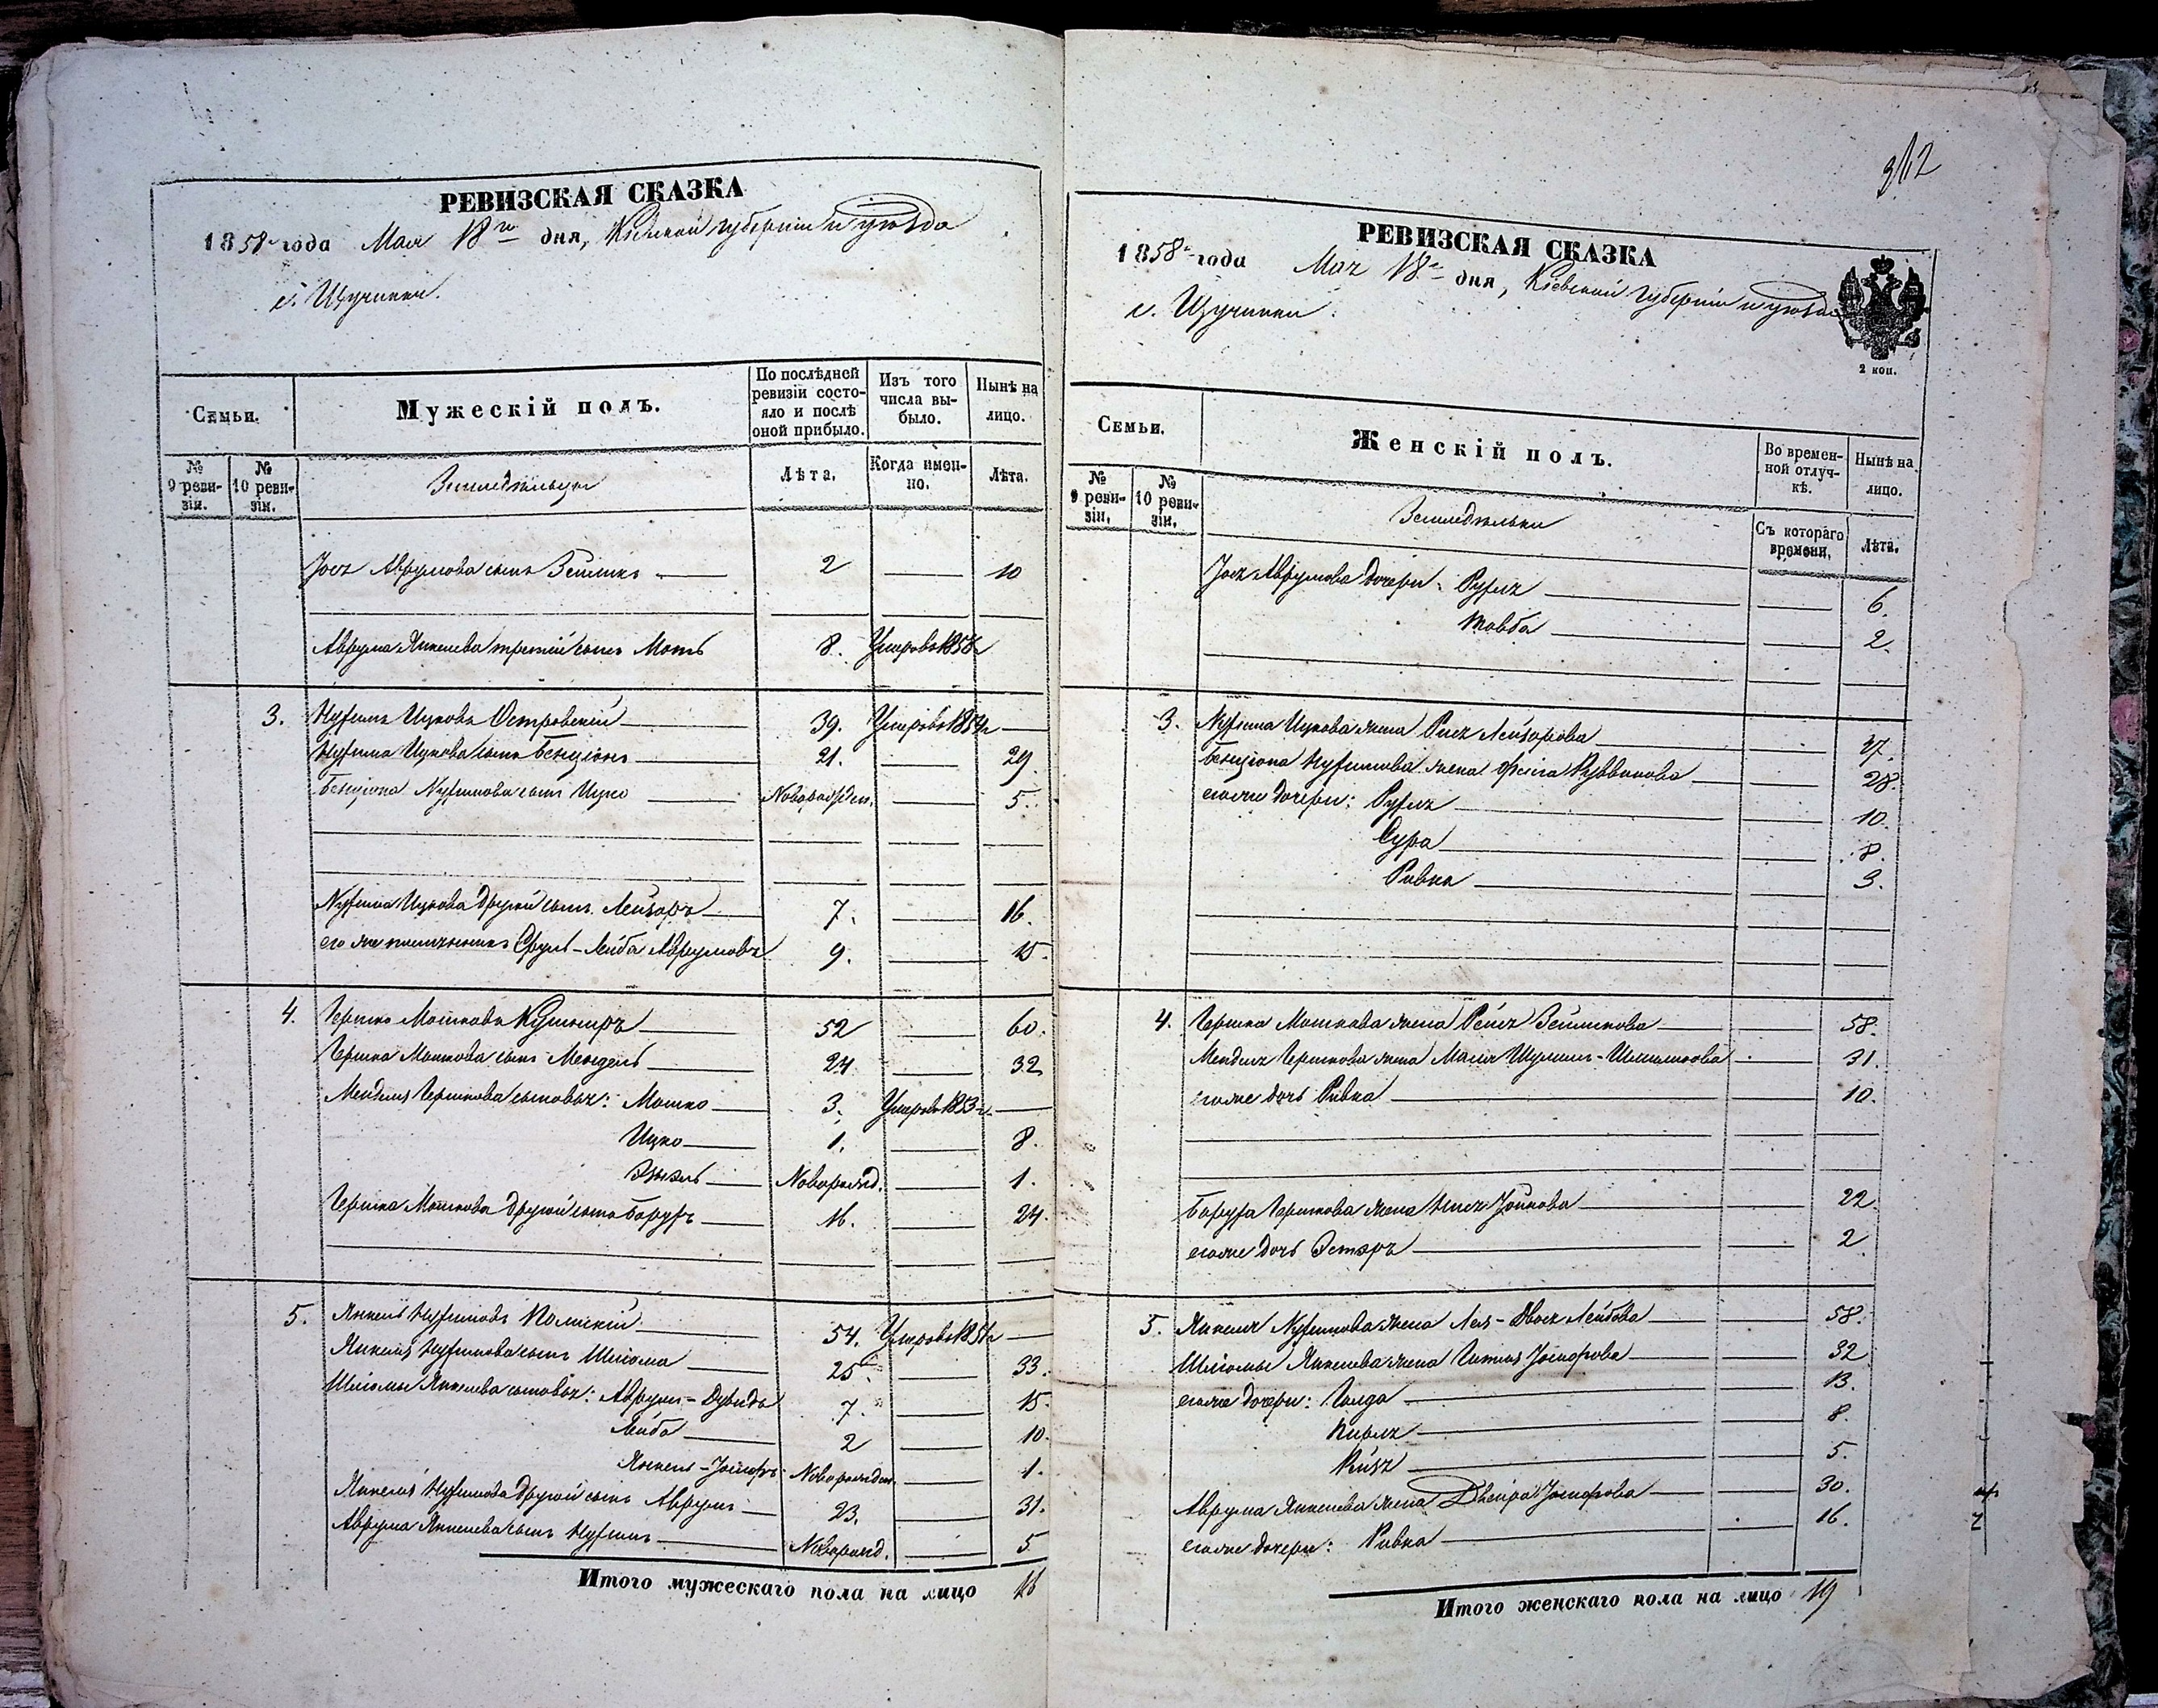 312
РЕВИЗСКАЯ СКАЗКА
1858 года Мая 18го дня, Кіевской губерніи и уѣзда
с. Щучинки.
Семьи.
Мужескій полъ.
По послѣдней ревизіи состояло и послѣ оной прибыло.
Изъ того числа выбыло.
Нынѣ на лицо.
№ 9 ревизіи.
№ 10 ревизіи.
Земледѣльцы
Лѣта.
Когда именно.
Лѣта.
Іося Аврумова сынъ Зейликъ 2 10
Аврума Янкелева третій сынъ Мотъ 8. Умеръ въ 1858
3. Нухимъ Ицковъ Островскій 39. Умеръ въ 1854
Нухима Ицкова сынъ Бенціонъ 21. 29
Бенціона Нухимова сынъ Ицко Новорожден. 5.
Нухима Ицкова другой сынъ Лейзоръ 7. 16.
его же племянникъ Сруль-Лейба Аврумовъ 9. 15.
4. Гершко Мошковъ Кушниръ 52 60.
Гершка Мошкова сынъ Мендель 24 32
Менделя Гершкова сыновья: Мошко 3. Умеръ въ 1853 г.
Ицко 1. 8.
Новорожд. 1.
Гершка Мошкова другой сынъ Борухъ 16. 24.
5. Янкель Нухимовъ 54. Умеръ въ 1851
Янкеля Нухимова сынъ Шлиома 25. 33.
Шлиомы Янкелева сыновья: Аврумъ-Дувидъ 7. 15.
Лейба 2 10.
Янкель-Іосифъ Новорожден. 1.
Янкеля Нухимова другой сынъ Аврумъ 23. 31.
Аврума Янкелева сынъ Нухимъ Новорожд. 5
Итого мужескаго пола на лицо 16
РЕВИЗСКАЯ СКАЗКА
1858 года Мая 18го дня, Кіевской губерніи и уѣзда
с. Щучинки.
2 коп.
Семьи.
Женскій полъ.
Во временной отлучкѣ.
Нынѣ на лицо.
№ 9 ревизіи.
№ 10 ревизіи.
Земледѣльки
Съ котораго времени.
Лѣта.
Іося Аврумова дочери: Рухля 6.
Товба 2.
3. Нухима Ицкова жена Рися Лейзорова
Бенціона Нухимова жена Фейга Рувинова 28.
его же дочери: Рухля 10.
Сура 8.
Ривка 3.
4. Гершка Мошкова жена Рейзя Зейликова 58.
Менделя Гершкова жена Маля 31.
его же дочь Ривка 10.
Боруха Гершкова жена 22.
его же дочь Эстеръ 2.
5. Янкеля Нухимова жена Лея-Двося Лейбова 58.
Шлиомы Янкелева жена Гитля Іосифова 32
его же дочери: Голда 13.
8.
5.
Аврума Янкелева жена Двейра Іосифова 30.
его же дочери: Ривка 16.
Итого женскаго пола на лицо 19